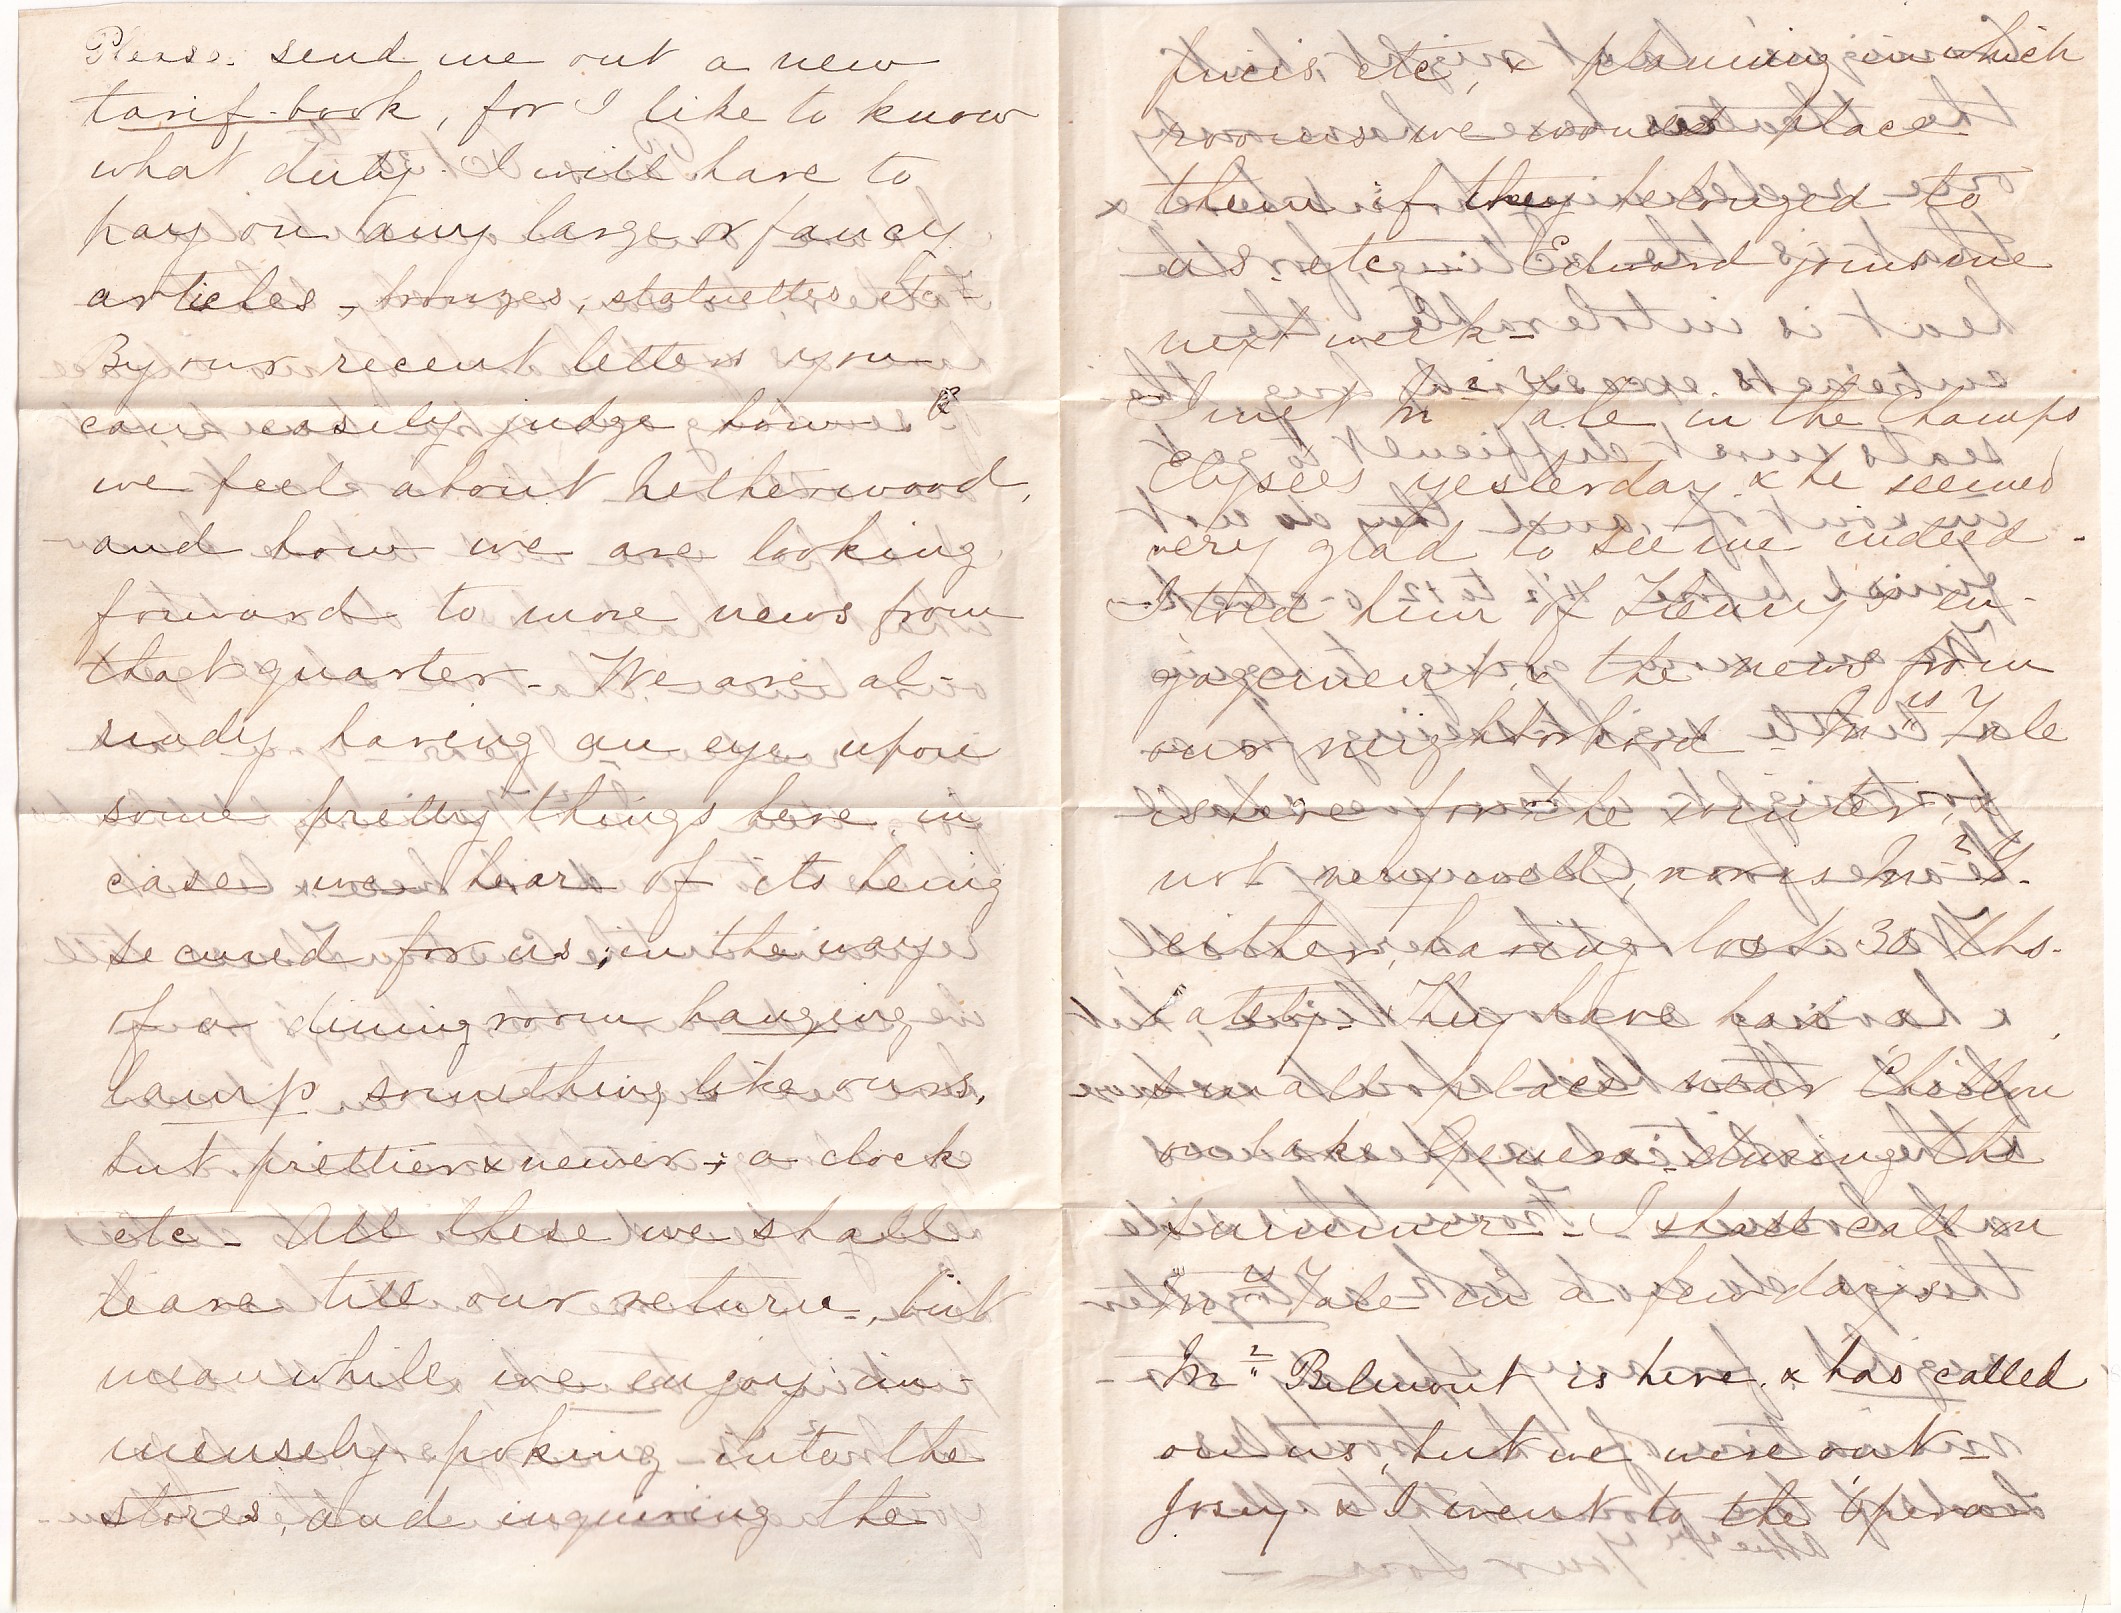 Please send me out a new
tarif-book, for I like to know
what duty I will have to
pay on any large or fancy
articles, bronzes, statuettes etc-
By our recent letters you
can easily judge how
we feel about Netherwood,
and how we are looking
forward to more news from
that quarter- We are al-
ready having an eye upon
some pretty things here, in
case we hear of its being
secured for us; in the way
of a dining room hanging
lamp something like ours,
but prettier & newer; a clock
etc- All these we shall
leave till our return, but
meanwhile we enjoy im-
mensely poking into the
stores, and inquiring the
prices, etc, & planning in which
rooms we would place
them if they belonged to
us etc- Edward joins me
next week-
I met Mr Yale in the Champs
Elysées yesterday & he seemed
very glad to see me indeed-
I told him of Fanny's en-
gagement, & the news from
our neighborhood- Mrs Yale
is here for the winter, &
not very well, nor is Mr Y.
either, having lost 30 lbs.
lately- They have had a
small place near Chillon
on Lake Geneva during the
summer- I shall call on
Mrs Yale in a few days-
Mr Belmont is here & has called
on us, but we were out-
Josey & I went to the Opera